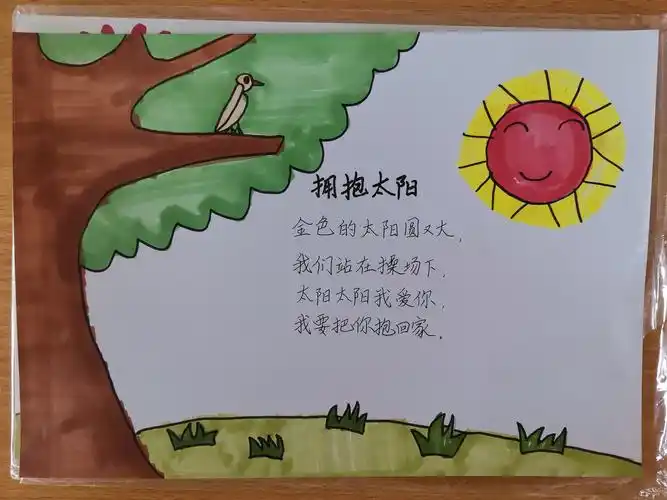 拥抱太阳
金色的太阳圆又大，
我们站在操场下，
太阳太阳我爱你，
我要把你抱回家。